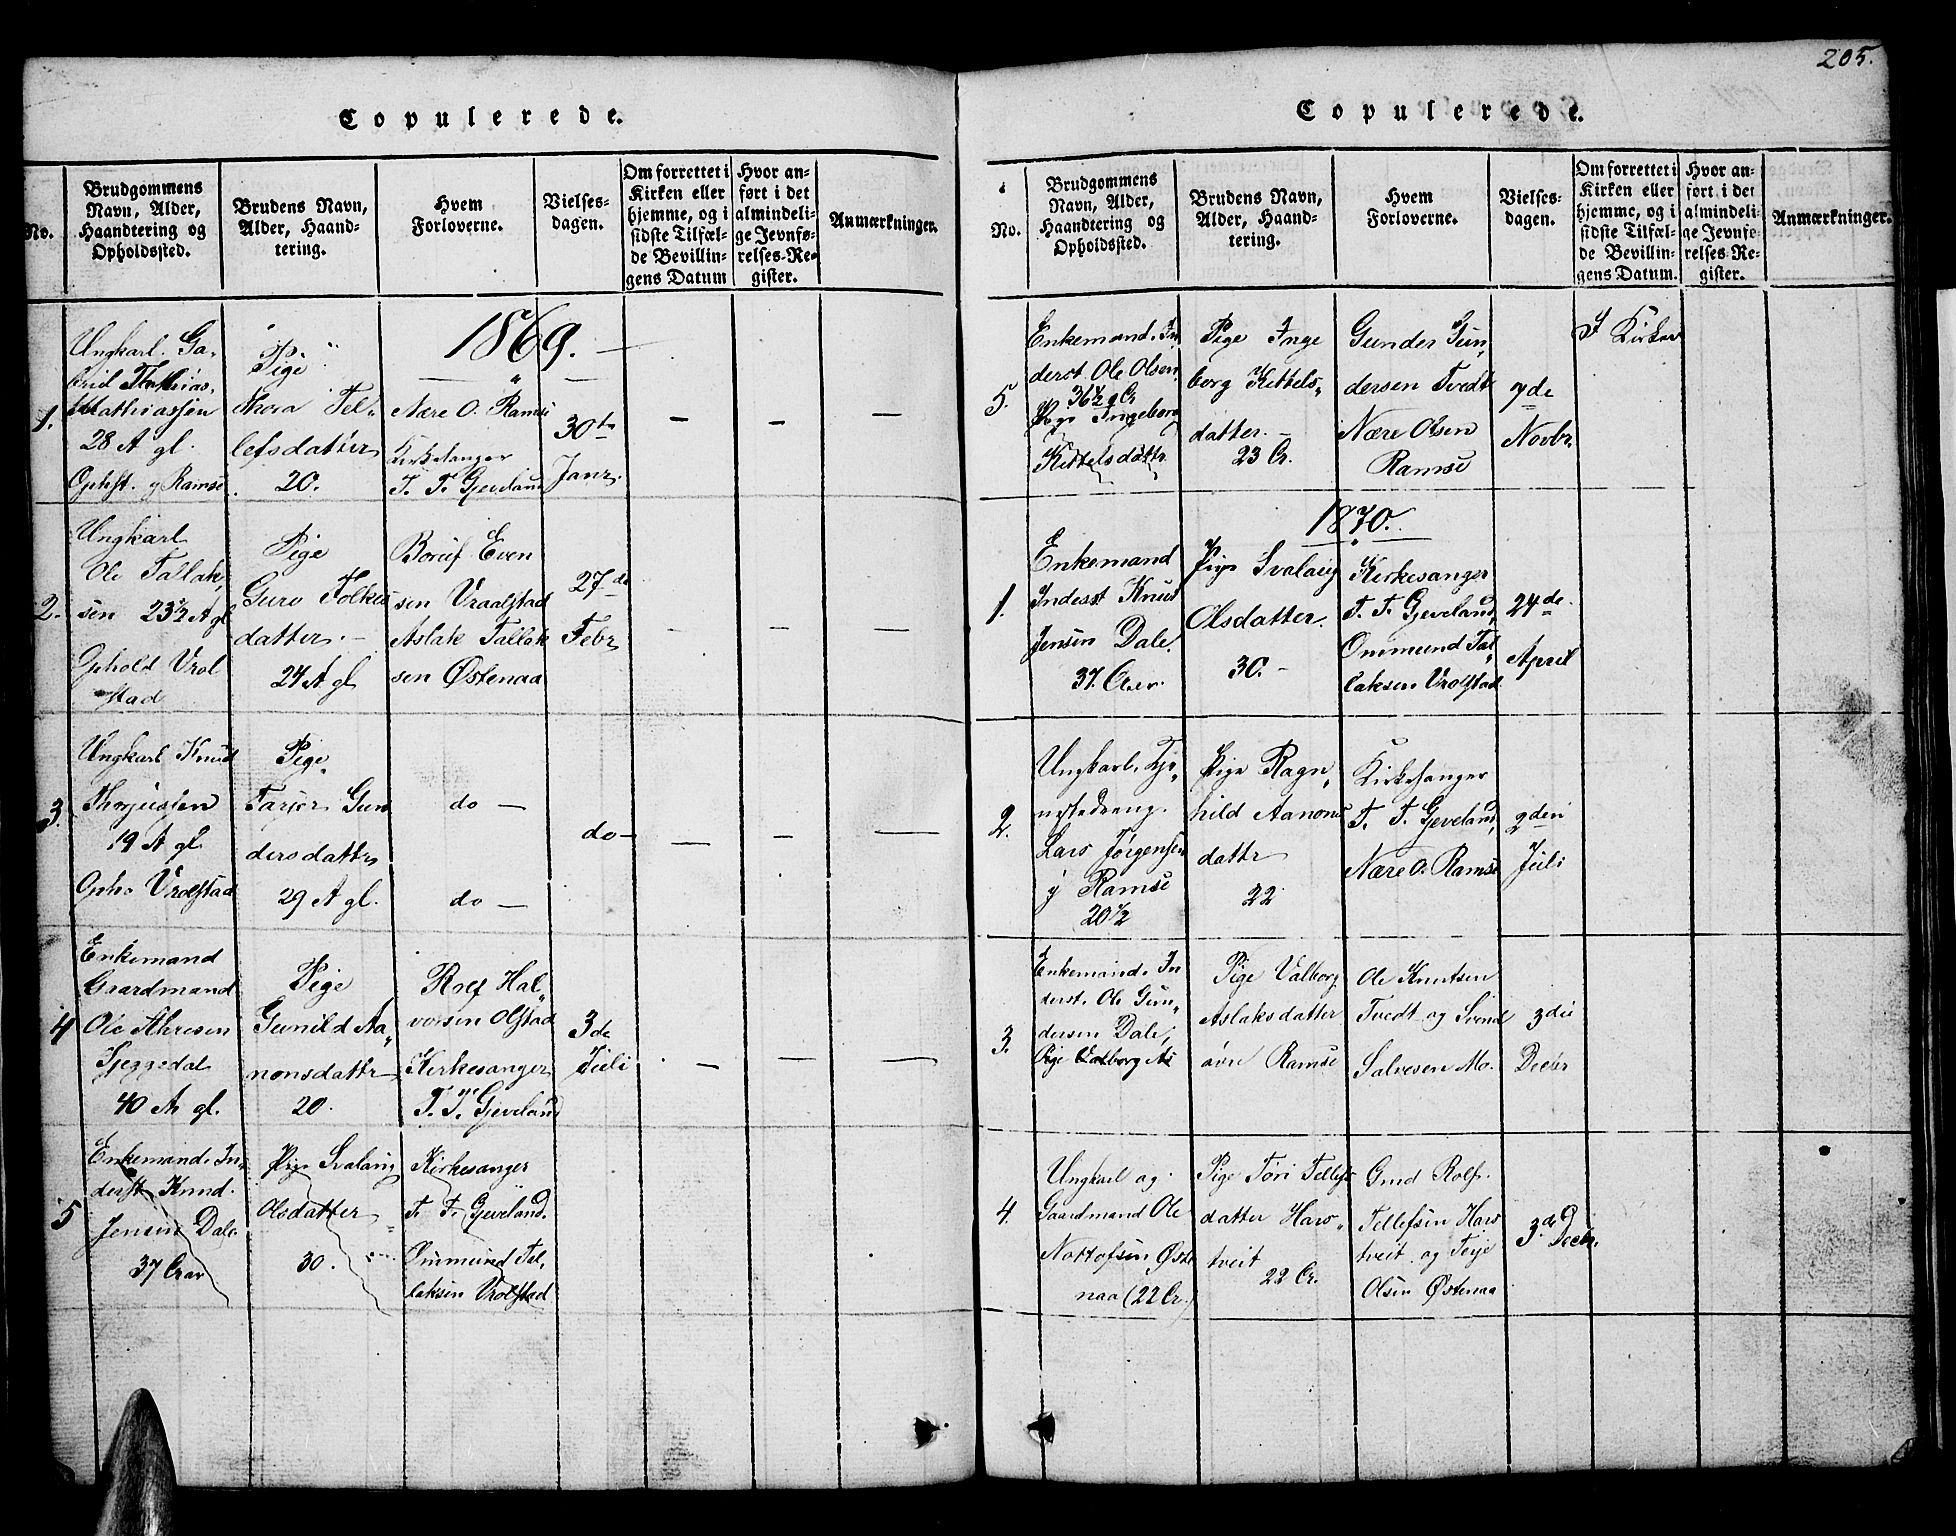 205.
Copulerede.
No.
Brudgommens
Navn, Alder,
Haandtering og
Opholdssted.
Brudens Navn,
Alder, Haand-
tering.
Hvem
Forloverne.
Vielses-
dagen.
Om forrettet i
Kirken eller
hjemme, og i
sidste Tilfæl-
de Bevillin-
gens Datum
Hvor an-
ført i det
almindeli-
ge Jevnfø-
relses-Re-
gister.
Anmærkninger.
1869.
1.
Ungkarl. Ga-
Mathiassen
28 A gl.
Ophst. y Ramse
Pige
Thora Tel-
lefsdatter
20.
Nære O. Ramse
Kirkesanger
T. T. Gjevland
30te
Janr.
2.
Ungkarl
Ole Tallak
sen 23½ A gl
Ophold Vrol
stad
Pige
Guro Folkes
datter.
24 A gl
Even
sen Vraalstad
Aslak Tallak
sen Østenaa
27de
Febr
3.
Ungkarl Knud
19 A gl.
Opho Vrolstad
Pige
Tarjer Gun
dersdattr
29 A gl.
do
do
do
4
Enkemand
Gaardmand
Ole
40 A gl.
Pige
Gunild Aa
nonsdattr
20.
Rolf Hal
vorsen Olstad
Kirkesanger
T. T. Gjeveland
3de
Juli
5
Enkemand. In
derst Knud
Jensen Dale
37 Aar
Pige Svalaug
Olsdatter
30.
Kirkesanger
T. T. Gjeveland.
Ommund Tal
laksen Vrolstad
Copulerede.
No.
Brudgommens
Navn, Alder,
Haandtering og
Opholdssted.
Brudens Navn,
Alder, Haand-
tering.
Hvem
Forloverne.
Vielses-
dagen.
Om forrettet i
Kirken eller
hjemme, og i
sidste Tilfæl-
de Bevillin-
gens Datum.
Hvor an-
ført i det
almindeli-
ge Jevnfø-
relses-Re-
gister.
Anmærkninger.
5.
Enkemand. In
derst Ole Olsen
36½ Pige Ingeborg
Kittelsdattr
Pige Inge
borg Kittels
datter.
23
Gunder Gun
dersen Tvedt
Nære Olsen
Ramse
7de
Novbr.
I Kirken
1870.
1.
Enkemand
Inderst Knud
Jensen Dale.
37. Aar.
Pige Svalaug
Olsdatter.
30.
Kirkesanger
T. T. Gjeveland,
Ommund Tal
laksen Vrolstad
24de
April
2.
Ungkarl, Tje
nestedreng.
Lars Jørgensen
y Ramse
20½
Pige Ragn
hild Aanons
dattr
22
Kirkesanger
T. T. Gjeveland,
Nære O. Ramse
2den
Juli
3.
Enkemand. In
derst. Ole Gun
dersen Dale,
Pige Valborg As
Pige Valborg
Aslaksdatter
øvre Ramse
Ole Knutsen
Tvedt og Svend
Salvesen Mo.
3die
Decbr
4.
Ungkarl og
Gaardmand Ole
Øste
naa (22
Pige Tøri Tellefs
datter Hars
tveit
22
Gmd Rolf
Tellefsen Hars
tveit og Terje
Olsen Østenaa
3de Decbr.